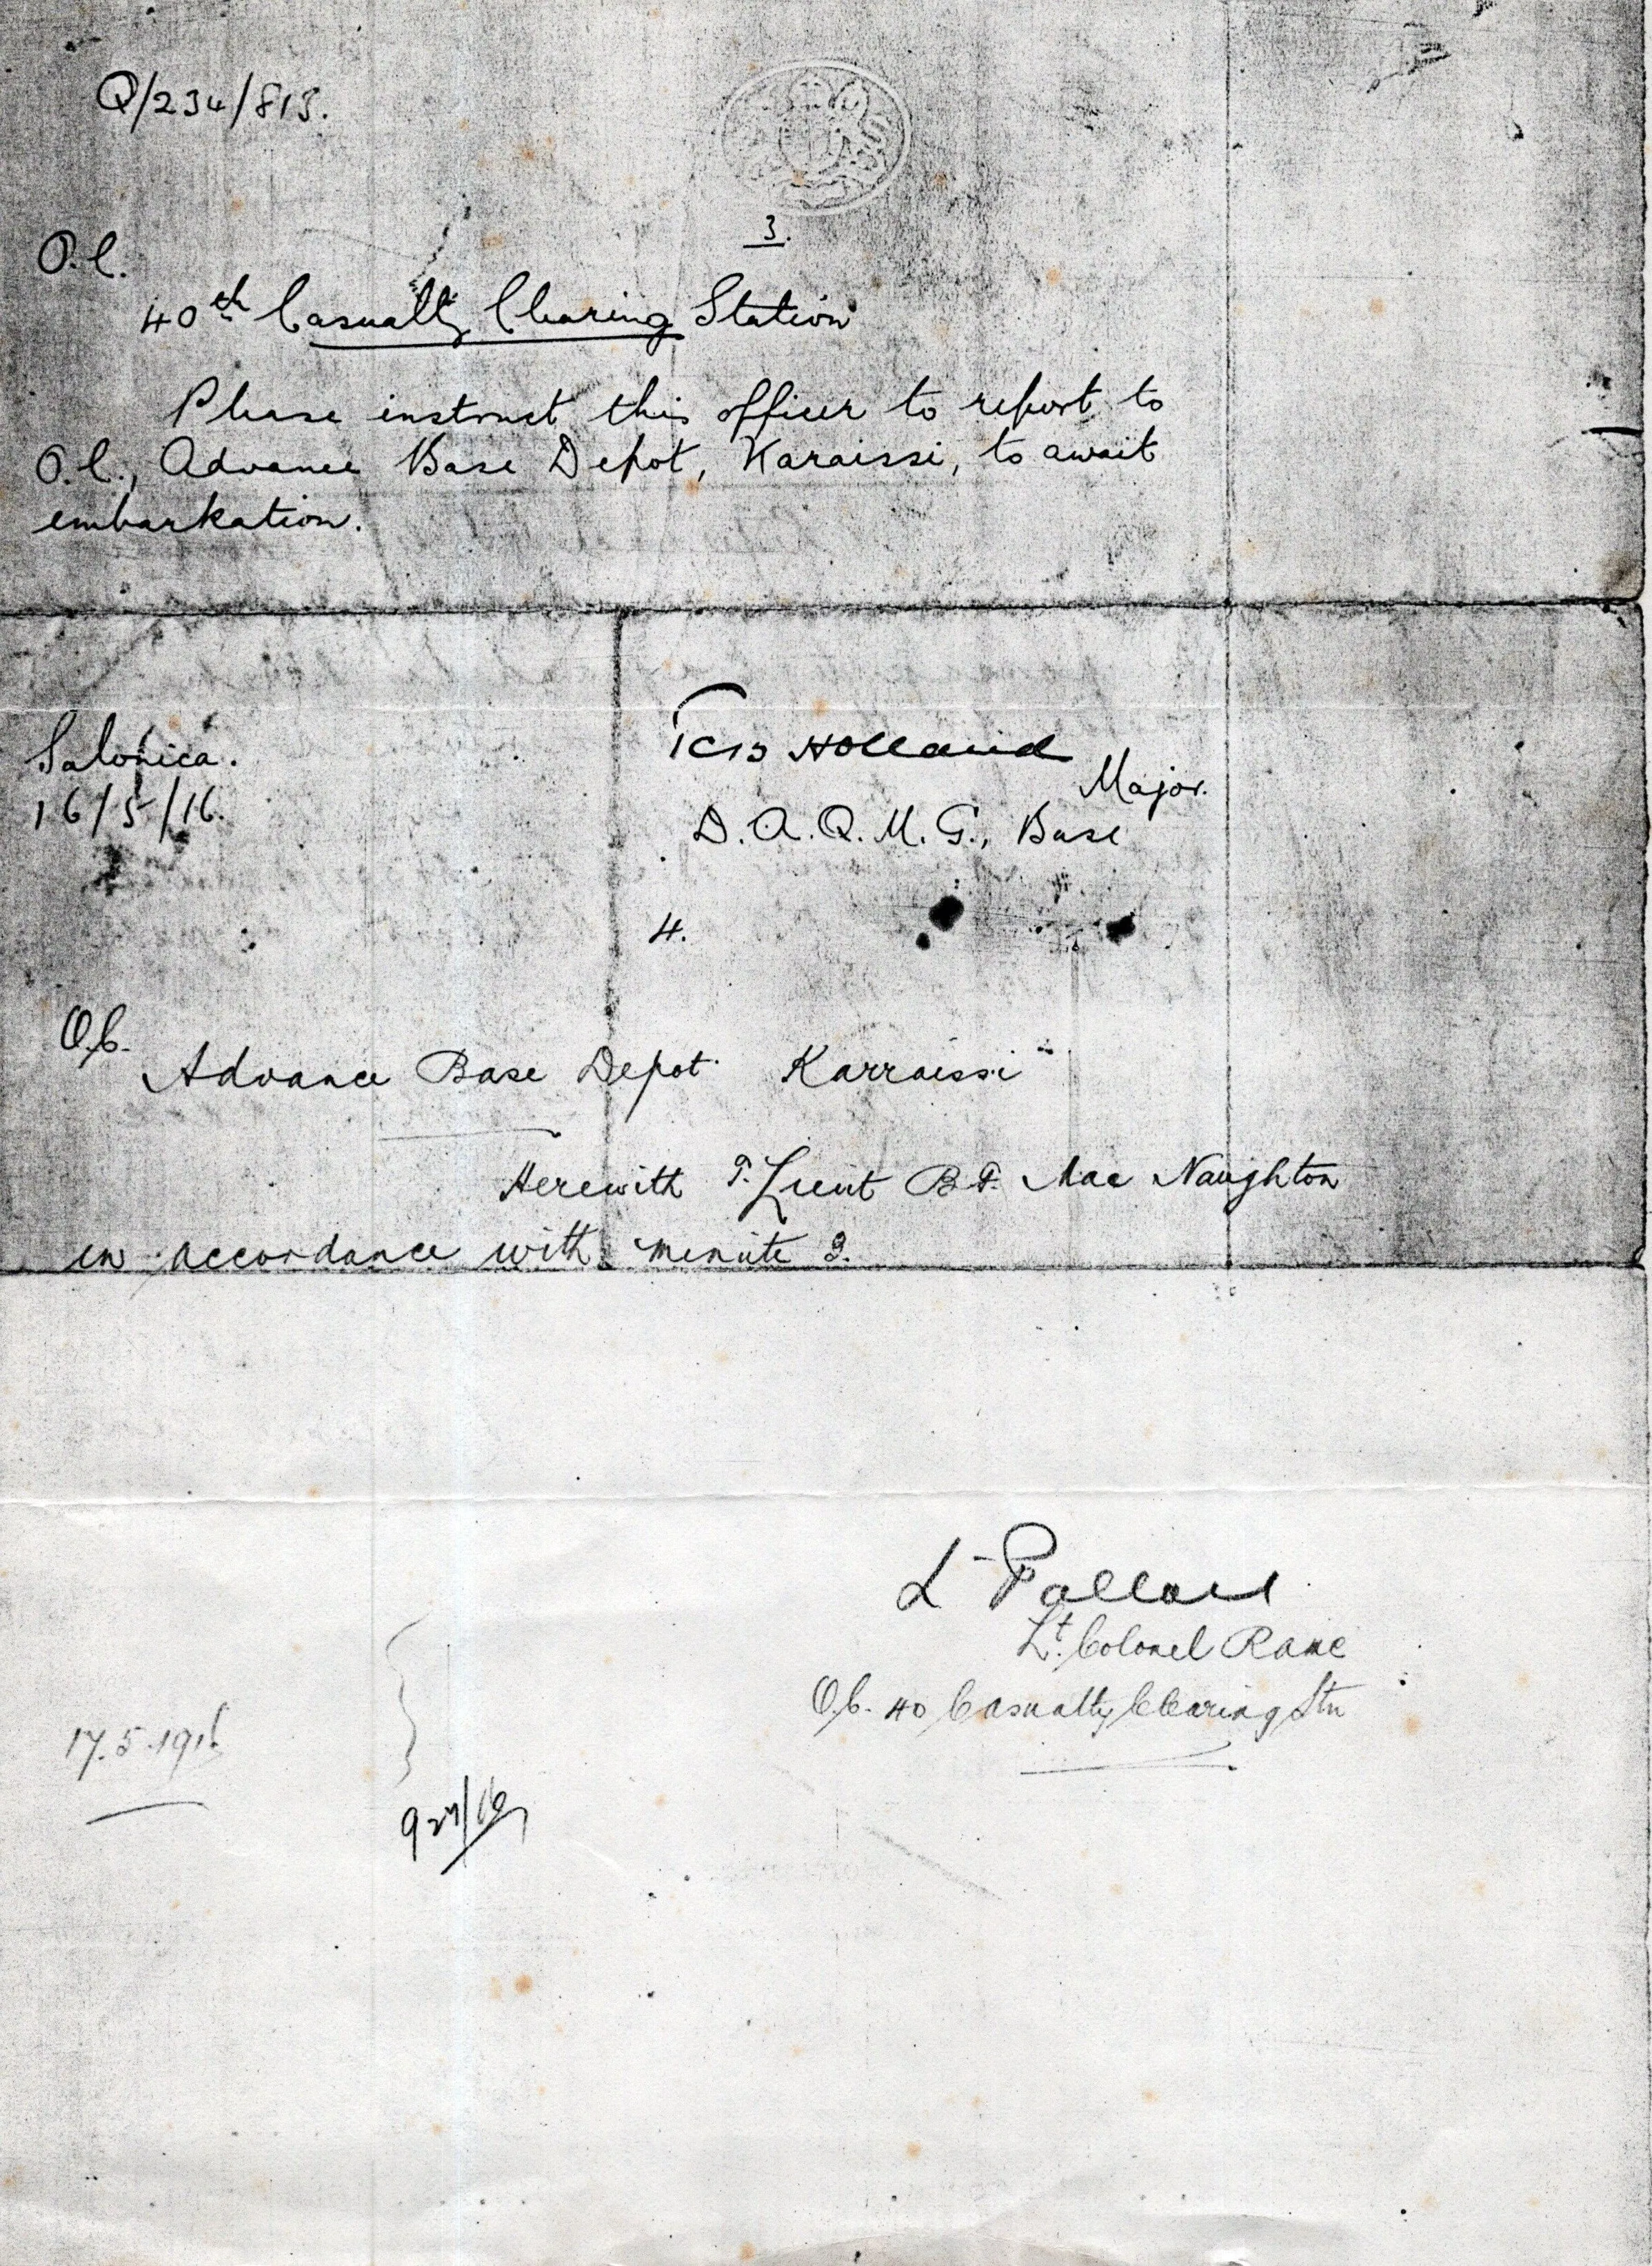 Q/234/813.
3.
O.C.
40th Casualty Clearing Station
Please instruct this officer to report to
O.C., Advance Base Depot, Karaissi, to await
embarkation.
Salonica.
16/5/16.
Holland
Major.
D.A.Q.M.G., Base
4.
O.C.
Advance Base Depot Karraissi
Herewith T. Lieut B.F. Mac Naughton
in accordance with minute 3.
L Pallard
Lt. Colonel RAMC
O.C. 40 Casualty Clearing Stn
17.5.1916